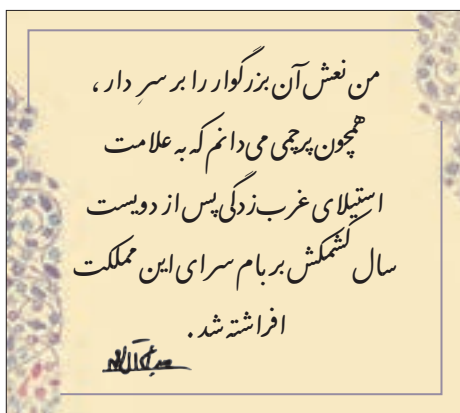 من نعش آن بزرگوار را بر سرِ دار ،
همچون پرچمی می‌دانم که به علامت
استیلای غرب‌زدگی پس از دویست
سال کشمکش بر بام سرای این مملکت
افراشته شد .